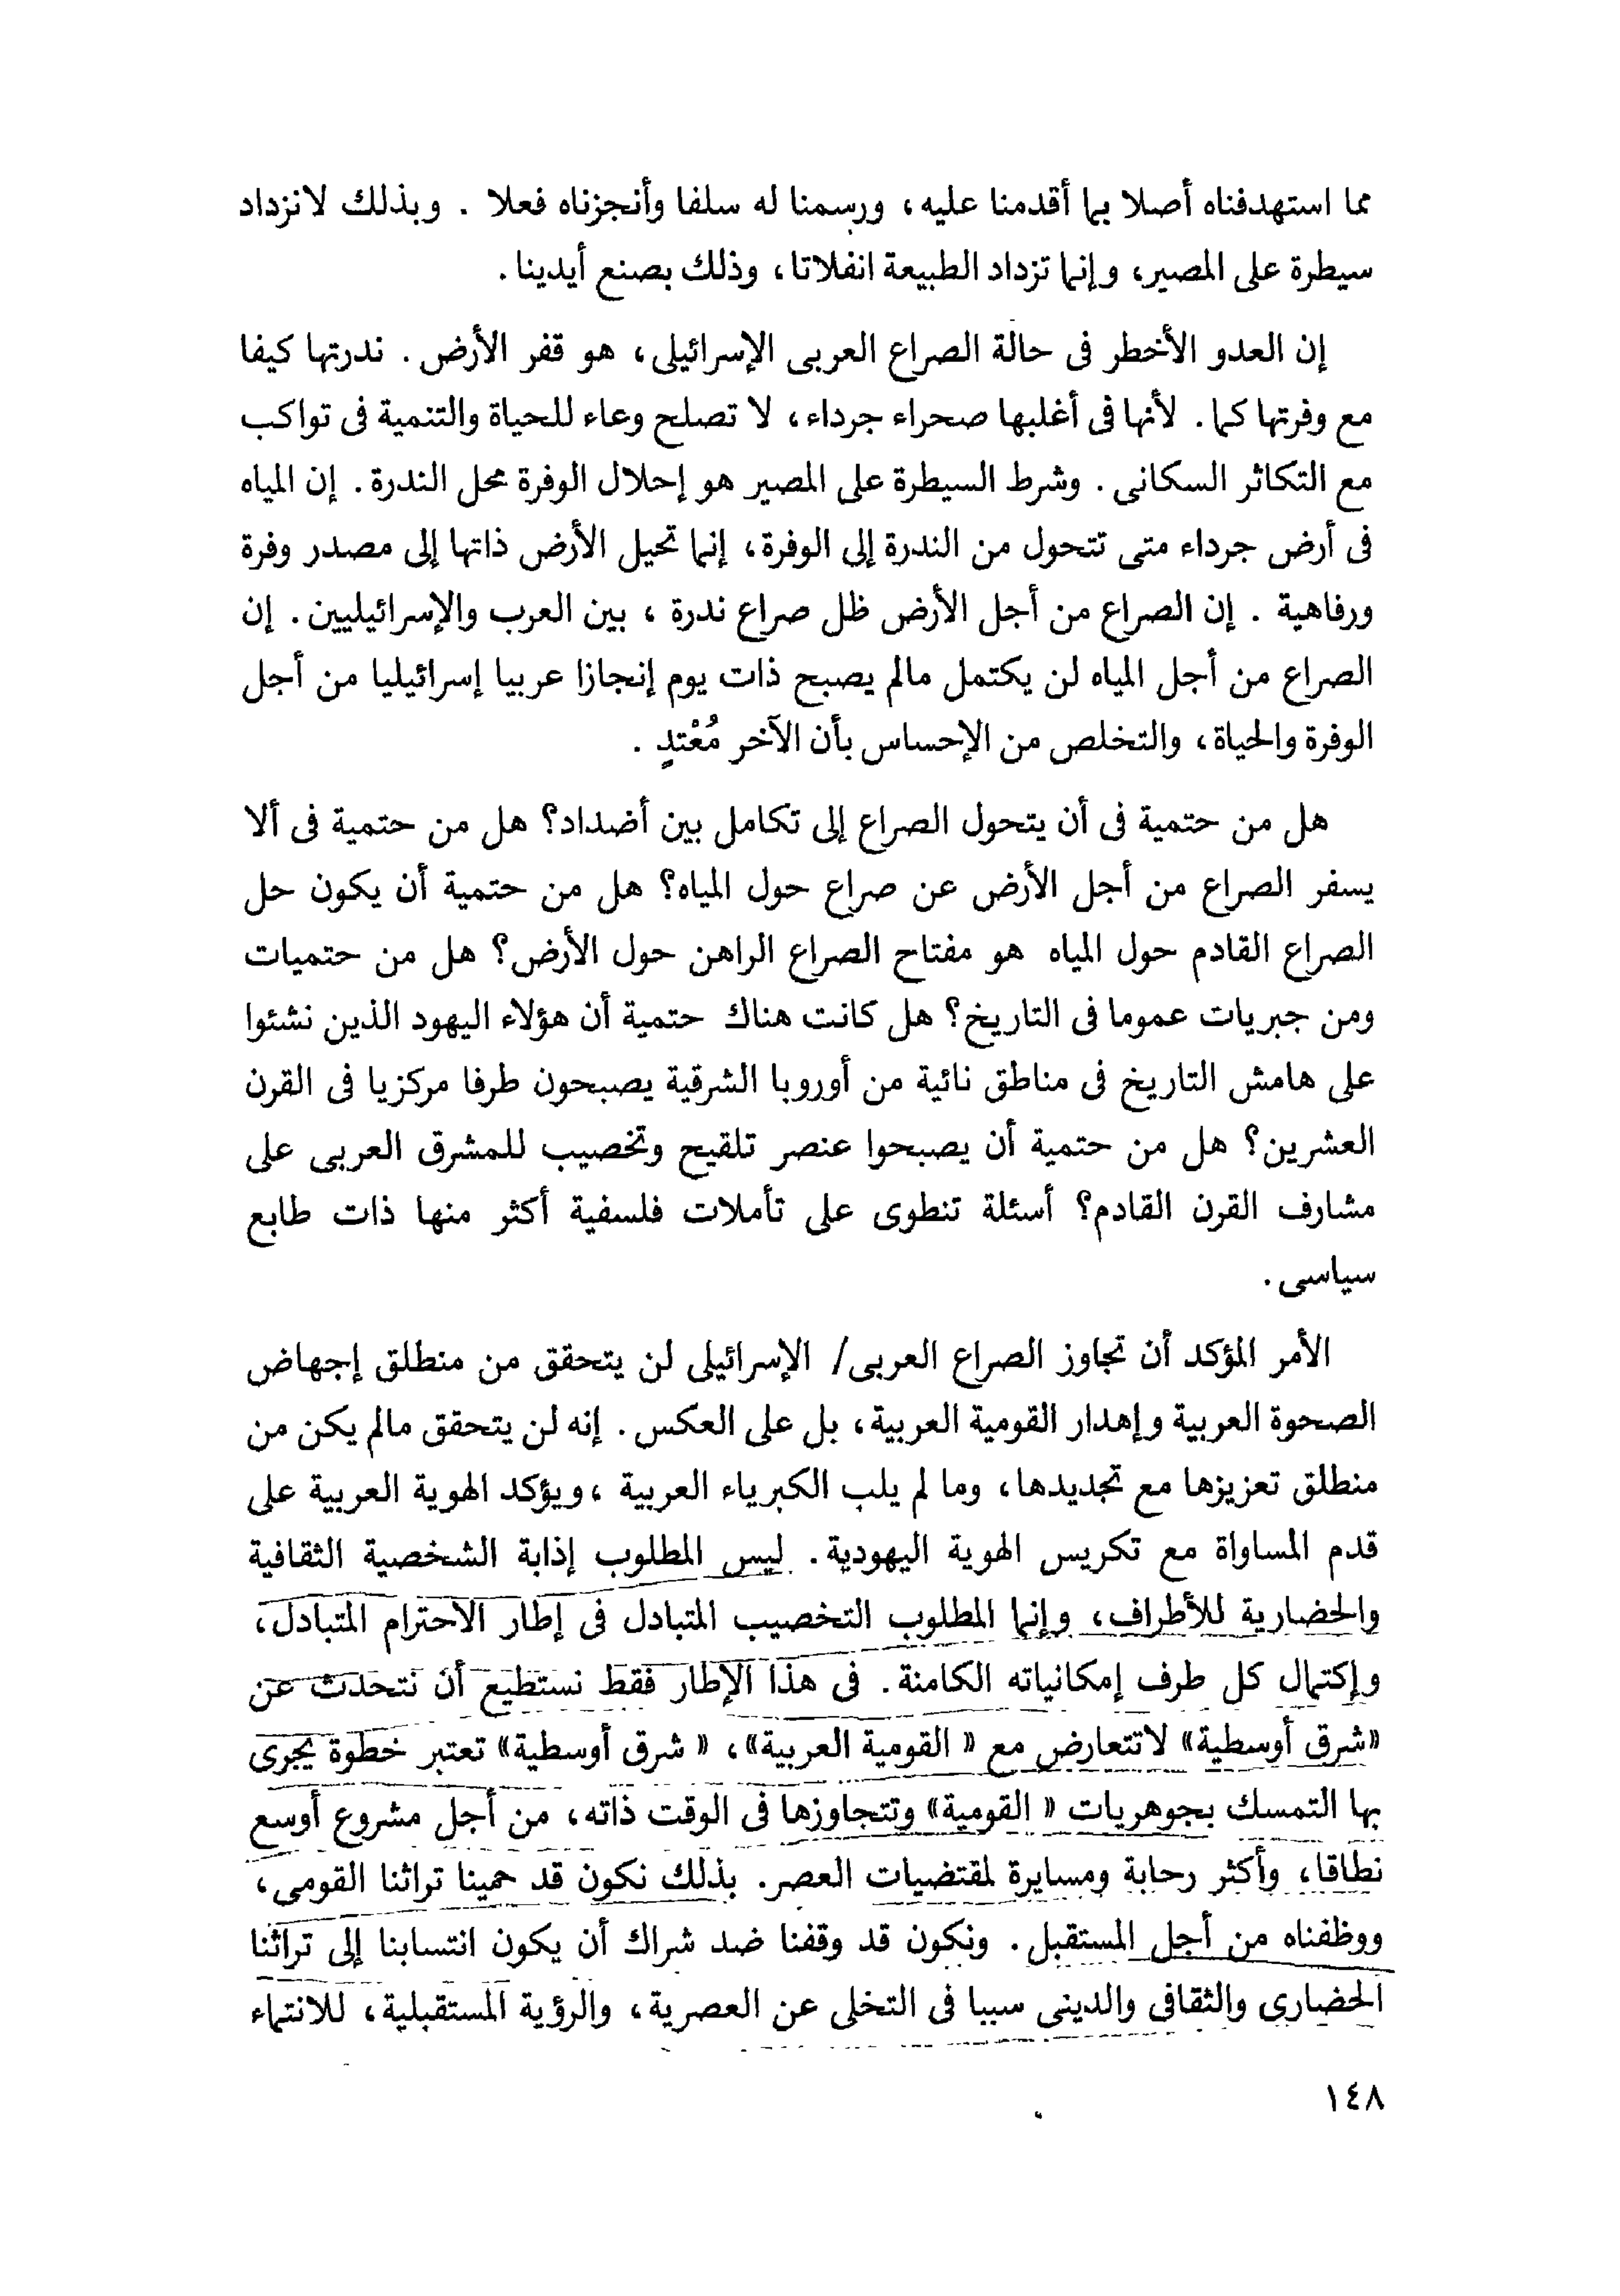 مما استهدفناه أصلا بما أقدمنا عليه، ورسمنا له سلفا وأنجزناه فعلا . وبذلك لانزداد
سيطرة على المصير، وإنما تزداد الطبيعة انفلاتا، وذلك بصنع أيدينا.
إن العدو الأخطر فى حالة الصراع العربى الإسرائيلى، هو قفر الأرض. ندرتها كيفا
مع وفرتها كما. لأنها فى أغلبها صحراء جرداء، لا تصلح وعاء للحياة والتنمية فى تواكب
مع التكاثر السكانى. وشرط السيطرة على المصير هو إحلال الوفرة محل الندرة. إن المياه
فى أرض جرداء متى تتحول من الندرة إلى الوفرة، إنما تحيل الأرض ذاتها إلى مصدر وفرة
ورفاهية . إن الصراع من أجل الأرض ظل صراع ندرة ، بين العرب والإسرائيليين. إن
الصراع من أجل المياه لن يكتمل مالم يصبح ذات يوم إنجازا عربيا إسرائيليا من أجل
الوفرة والحياة، والتخلص من الإحساس بأن الآخر مُعْتدٍ .
هل من حتمية فى أن يتحول الصراع إلى تكامل بين أضداد؟ هل من حتمية فى ألا
يسفر الصراع من أجل الأرض عن صراع حول المياه؟ هل من حتمية أن يكون حل
الصراع القادم حول المياه هو مفتاح الصراع الراهن حول الأرض؟ هل من حتميات
ومن جبريات عموما فى التاريخ؟ هل كانت هناك حتمية أن هؤلاء اليهود الذين نشئوا
على هامش التاريخ فى مناطق نائية من أوروبا الشرقية يصبحون طرفا مركزيا فى القرن
العشرين؟ هل من حتمية أن يصبحوا عنصر تلقيح وتخصيب للمشرق العربى على
مشارف القرن القادم؟ أسئلة تنطوى على تأملات فلسفية أكثر منها ذات طابع
سياسى.
الأمر المؤكد أن تجاوز الصراع العربى/ الإسرائيلى لن يتحقق من منطلق إجهاض
الصحوة العربية وإهدار القومية العربية، بل على العكس. إنه لن يتحقق مالم يكن من
منطلق تعزيزها مع تجديدها، وما لم يلب الكبرياء العربية ،ويؤكد الهوية العربية على
قدم المساواة مع تكريس الهوية اليهودية. ليس المطلوب إذابة الشخصية الثقافية
والحضارية للأطراف، وإنما المطلوب التخصيب المتبادل فى إطار الاحترام المتبادل،
وإكتمال كل طرف إمكانياته الكامنة. فى هذا الإطار فقط نستطيع أن نتحدث عن
«شرق أوسطية» لاتتعارض مع « القومية العربية»، « شرق أوسطية» تعتبر خطوة يجرى
بها التمسك بجوهريات « القومية» وتتجاوزها فى الوقت ذاته، من أجل مشروع أوسع
نطاقا، وأكثر رحابة ومسايرة لمقتضيات العصر. بذلك نكون قد حمينا تراثنا القومى،
ووظفناه من أجل المستقبل. ونكون قد وقفنا ضد شراك أن يكون انتسابنا إلى تراثنا
الحضارى والثقافى والدينى سببا فى التخلى عن العصرية، والرؤية المستقبلية، للانتماء
١٤٨